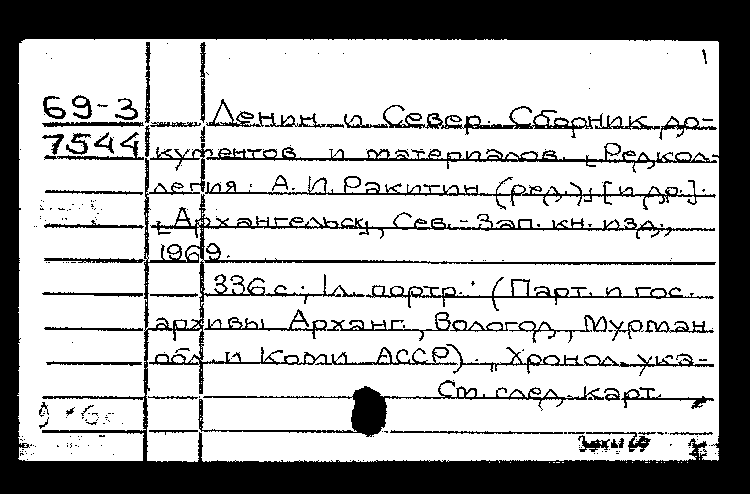 1
69-3 Ленин и Север. Сборник до-
7544 кументов и материалов. [Редкол-
легия: А. И. Ракитин (ред.)] [и др.].
[Архангельск], Сев.-Зап. кн. изд.,
1969.
336 с.; 1 л. портр. (Парт. и гос.
архивы Арханг., Вологод., Мурман.
обл. и Коми АССР). "Хронол. ука-
См. след. карт.